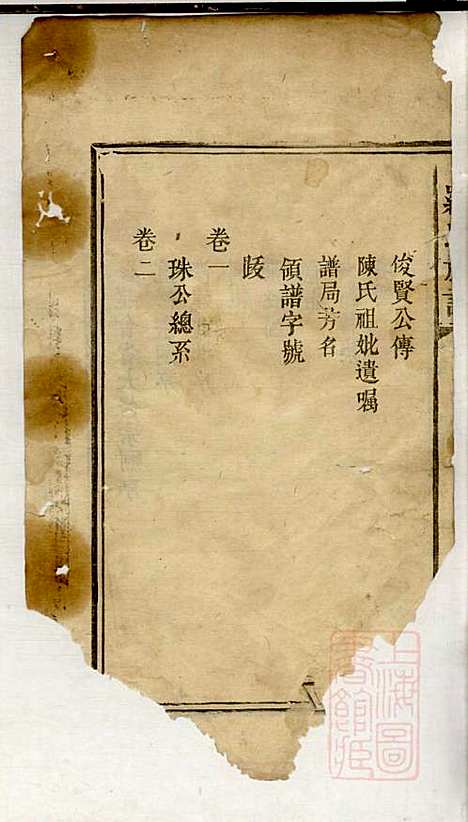 俊賢公傳
陳氏祖妣遺嘱
譜局芳名
領譜字號
跋
卷一
珠公總系
卷二
上海圖
書館藏